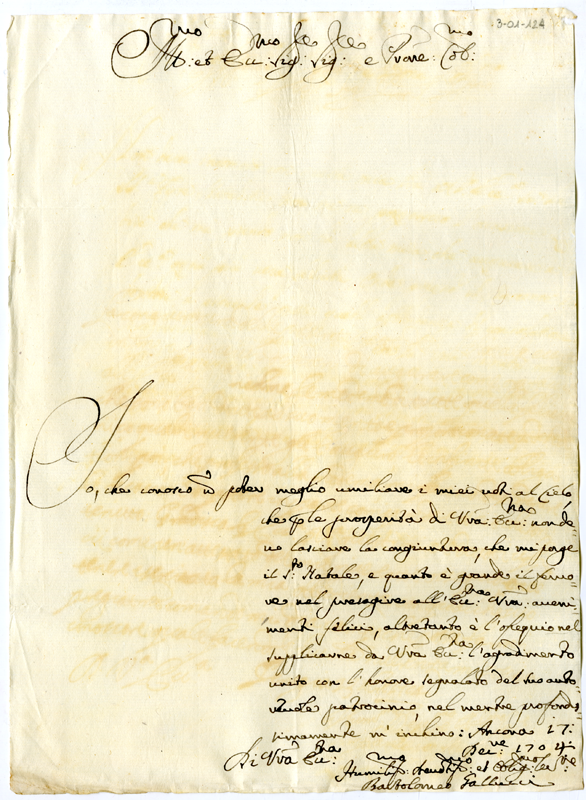 3-01-124
Ill:mo et Ecc:mo Sig:re Sig:re e Prone Col:mo
Io, che conosco ñ poter meglio umiliare i miei voti al Cielo,
che ple prosperità di Vrã: Ecc:nza non de-
vo lasciare la congiuntura, che mi porge
il S:to Natale, e quanto è grande il
re nel presagire all'Ecc:nza Vrã: aveni-
menti felici, altretanto è l'osequio nel
supplicarne da Vrã Ecc:nza l'agradimento
unito con l'honore segnalato del suo auto-
revole patrocinio, nel mentre profondis-
simamente m'inchino: Ancona 17:
Xbre 1704
Di Vrã Ecc:nza
Humiliss:mo Devotiss:mo et Oblig:mo Ser:re
Bartolomeo Gallucci